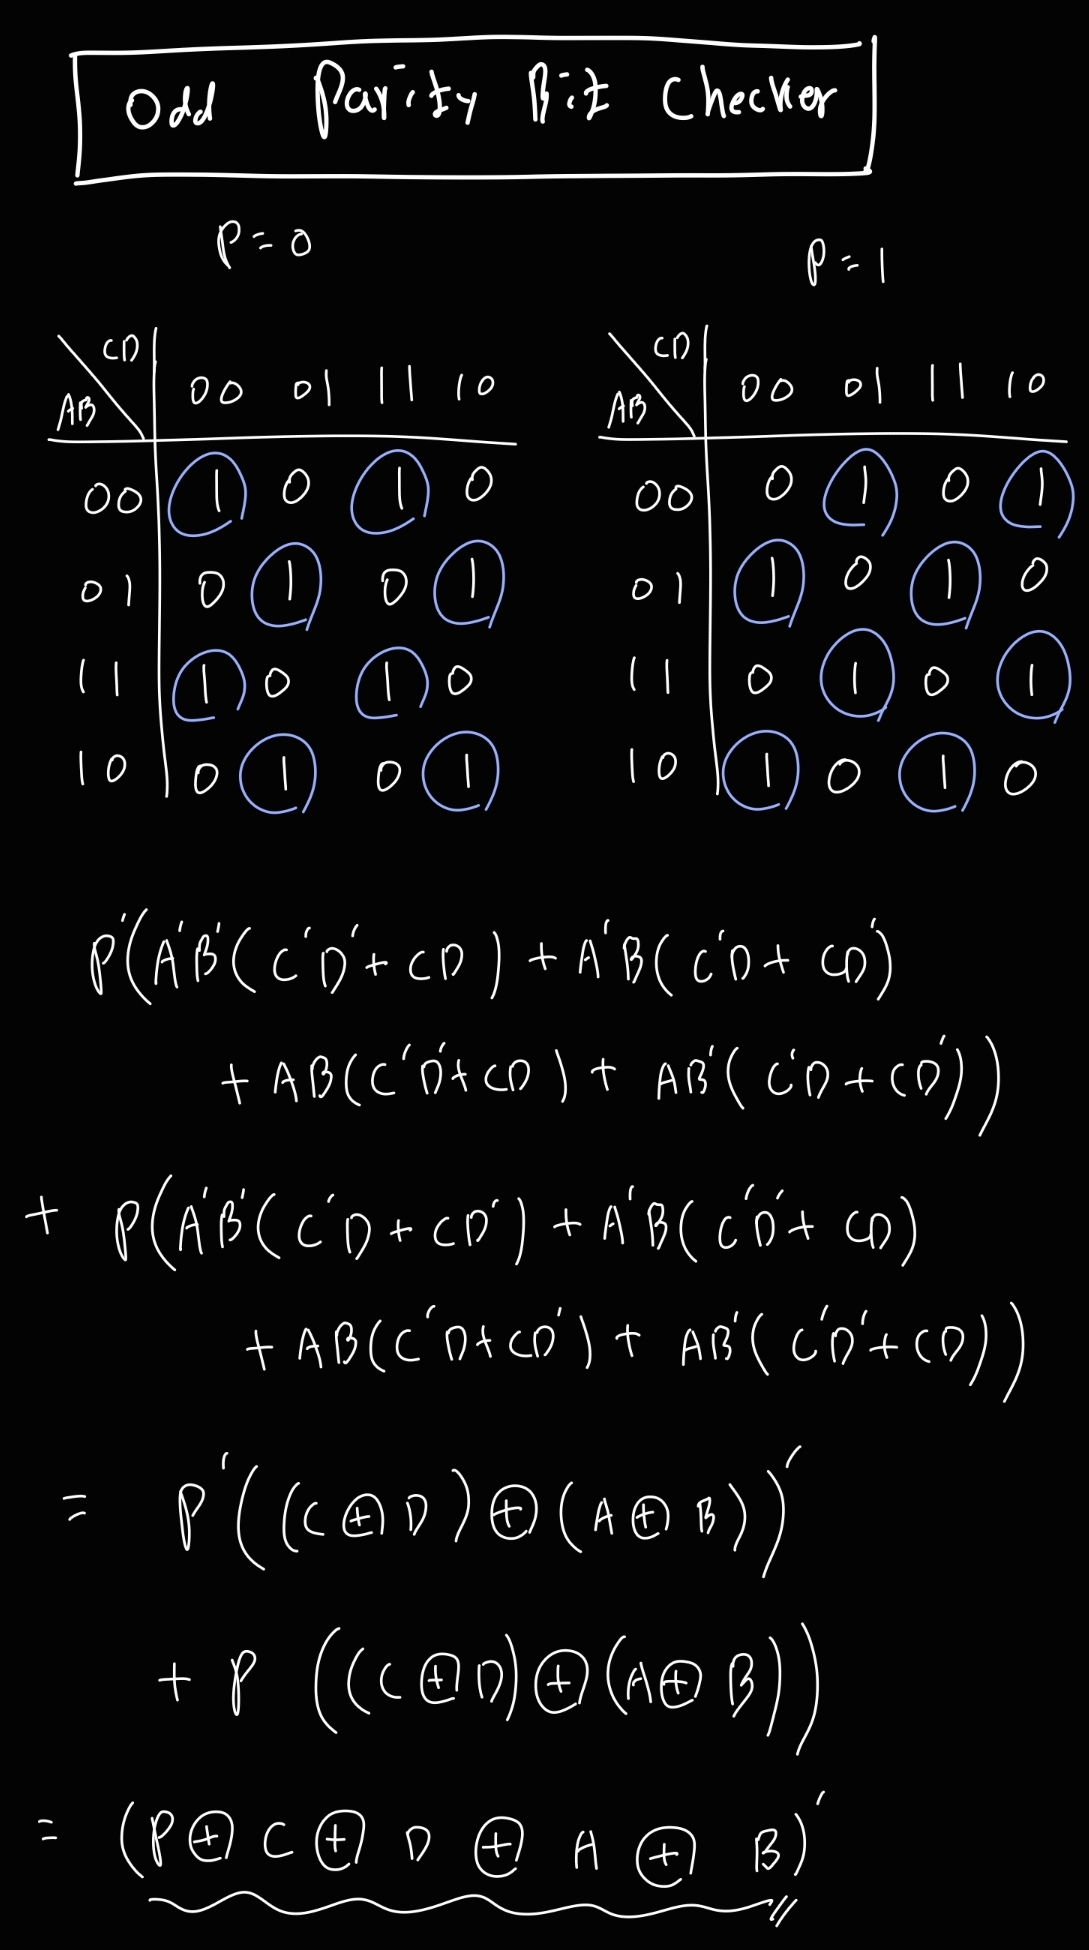 Odd Parity Bit Checker
P=0 P=1
CD CD
AB 00 01 11 10 AB 00 01 11 10
00 1 0 1 0 00 0 1 0 1
01 0 1 0 1 01 1 0 1 0
11 1 0 1 0 11 0 1 0 1
10 0 1 0 1 10 1 0 1 0
P'(A'B'(C'D'+CD)+A'B(C'D+CD')
+AB(C'D'+CD)+AB'(C'D+CD'))
+ P(A'B'(C'D+CD')+A'B(C'D'+CD)
+AB(C'D+CD')+AB'(C'D'+CD))
= P'((C⊕D)⊕(A⊕B))'
+ P ((C⊕D)⊕(A⊕B))
= (P⊕C⊕D⊕A⊕B)'